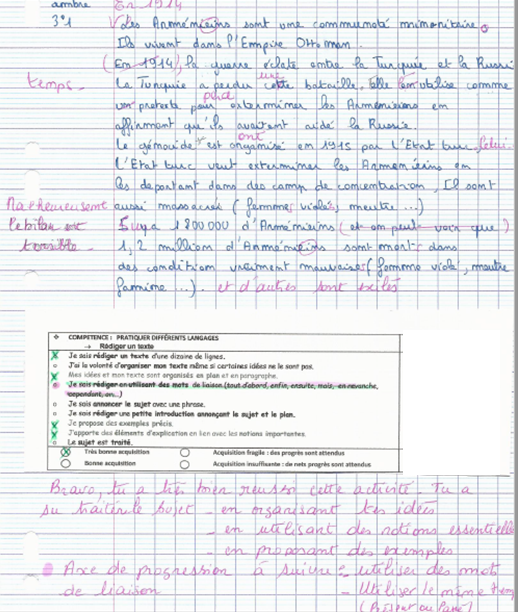 ambre En 1914
3°1 Les Arméniéins sont une communoté minoritaire.
Ils vivent dans l'Empire Ottoman.
(En 1914), la guerre éclate entre la Turquie et la Russi
temps - La Turquie a perdu cette bataille. Elle l'utilise comme
une perd
un pretexte pour exterminer les Arméniéins en
affirmant qu'ils avaitent aidé la Russie.
ont
Le génoside est organisé en 1915 par l'Etat turc, Celui
l'Etat turc veut exterminer les Armeniéins en
les deportant dans des camp de concentration, Il sont
Malheureusement aussi massacrés (femmes violés, meutre ...)
le bilan est Il y a 1 800 000 d'Arméniéins (et on peut voir que)
terrible - 1, 2 million d'Arméniéins sont mort dans
des condition vraiment mauvaise (femme violé, meutre
famine ...). et d'autres sont exilés
❖ COMPETENCE : PRATIQUER DIFFÉRENTS LANGAGES
→ Rédiger un texte
Je sais rédiger un texte d'une dizaine de lignes.
J'ai la volonté d'organiser mon texte même si certaines idées ne le sont pas.
Mes idées et mon texte sont organisés en plan et en paragraphe.
Je sais rédiger en utilisant des mots de liaison (tout d'abord, enfin, ensuite, mais, en revanche,
cependant, or...)
Je sais annoncer le sujet avec une phrase.
Je sais rédiger une petite introduction annonçant le sujet et le plan.
Je propose des exemples précis.
J'apporte des éléments d'explication en lien avec les notions importantes.
Le sujet est traité.
Très bonne acquisition Acquisition fragile : des progrès sont attendus
Bonne acquisition Acquisition insuffisante : de nets progrès sont attendus
Bravo, tu a très bien reussi cette activité Tu a
su traiter le sujet - en organisant tes idées
- en utilisant des notions essentielle
- en proposant des exemples
Axe de progression à suivre : - utiliser des mot
de liaison - Utiliser le même tem
(Présent ou Passé)